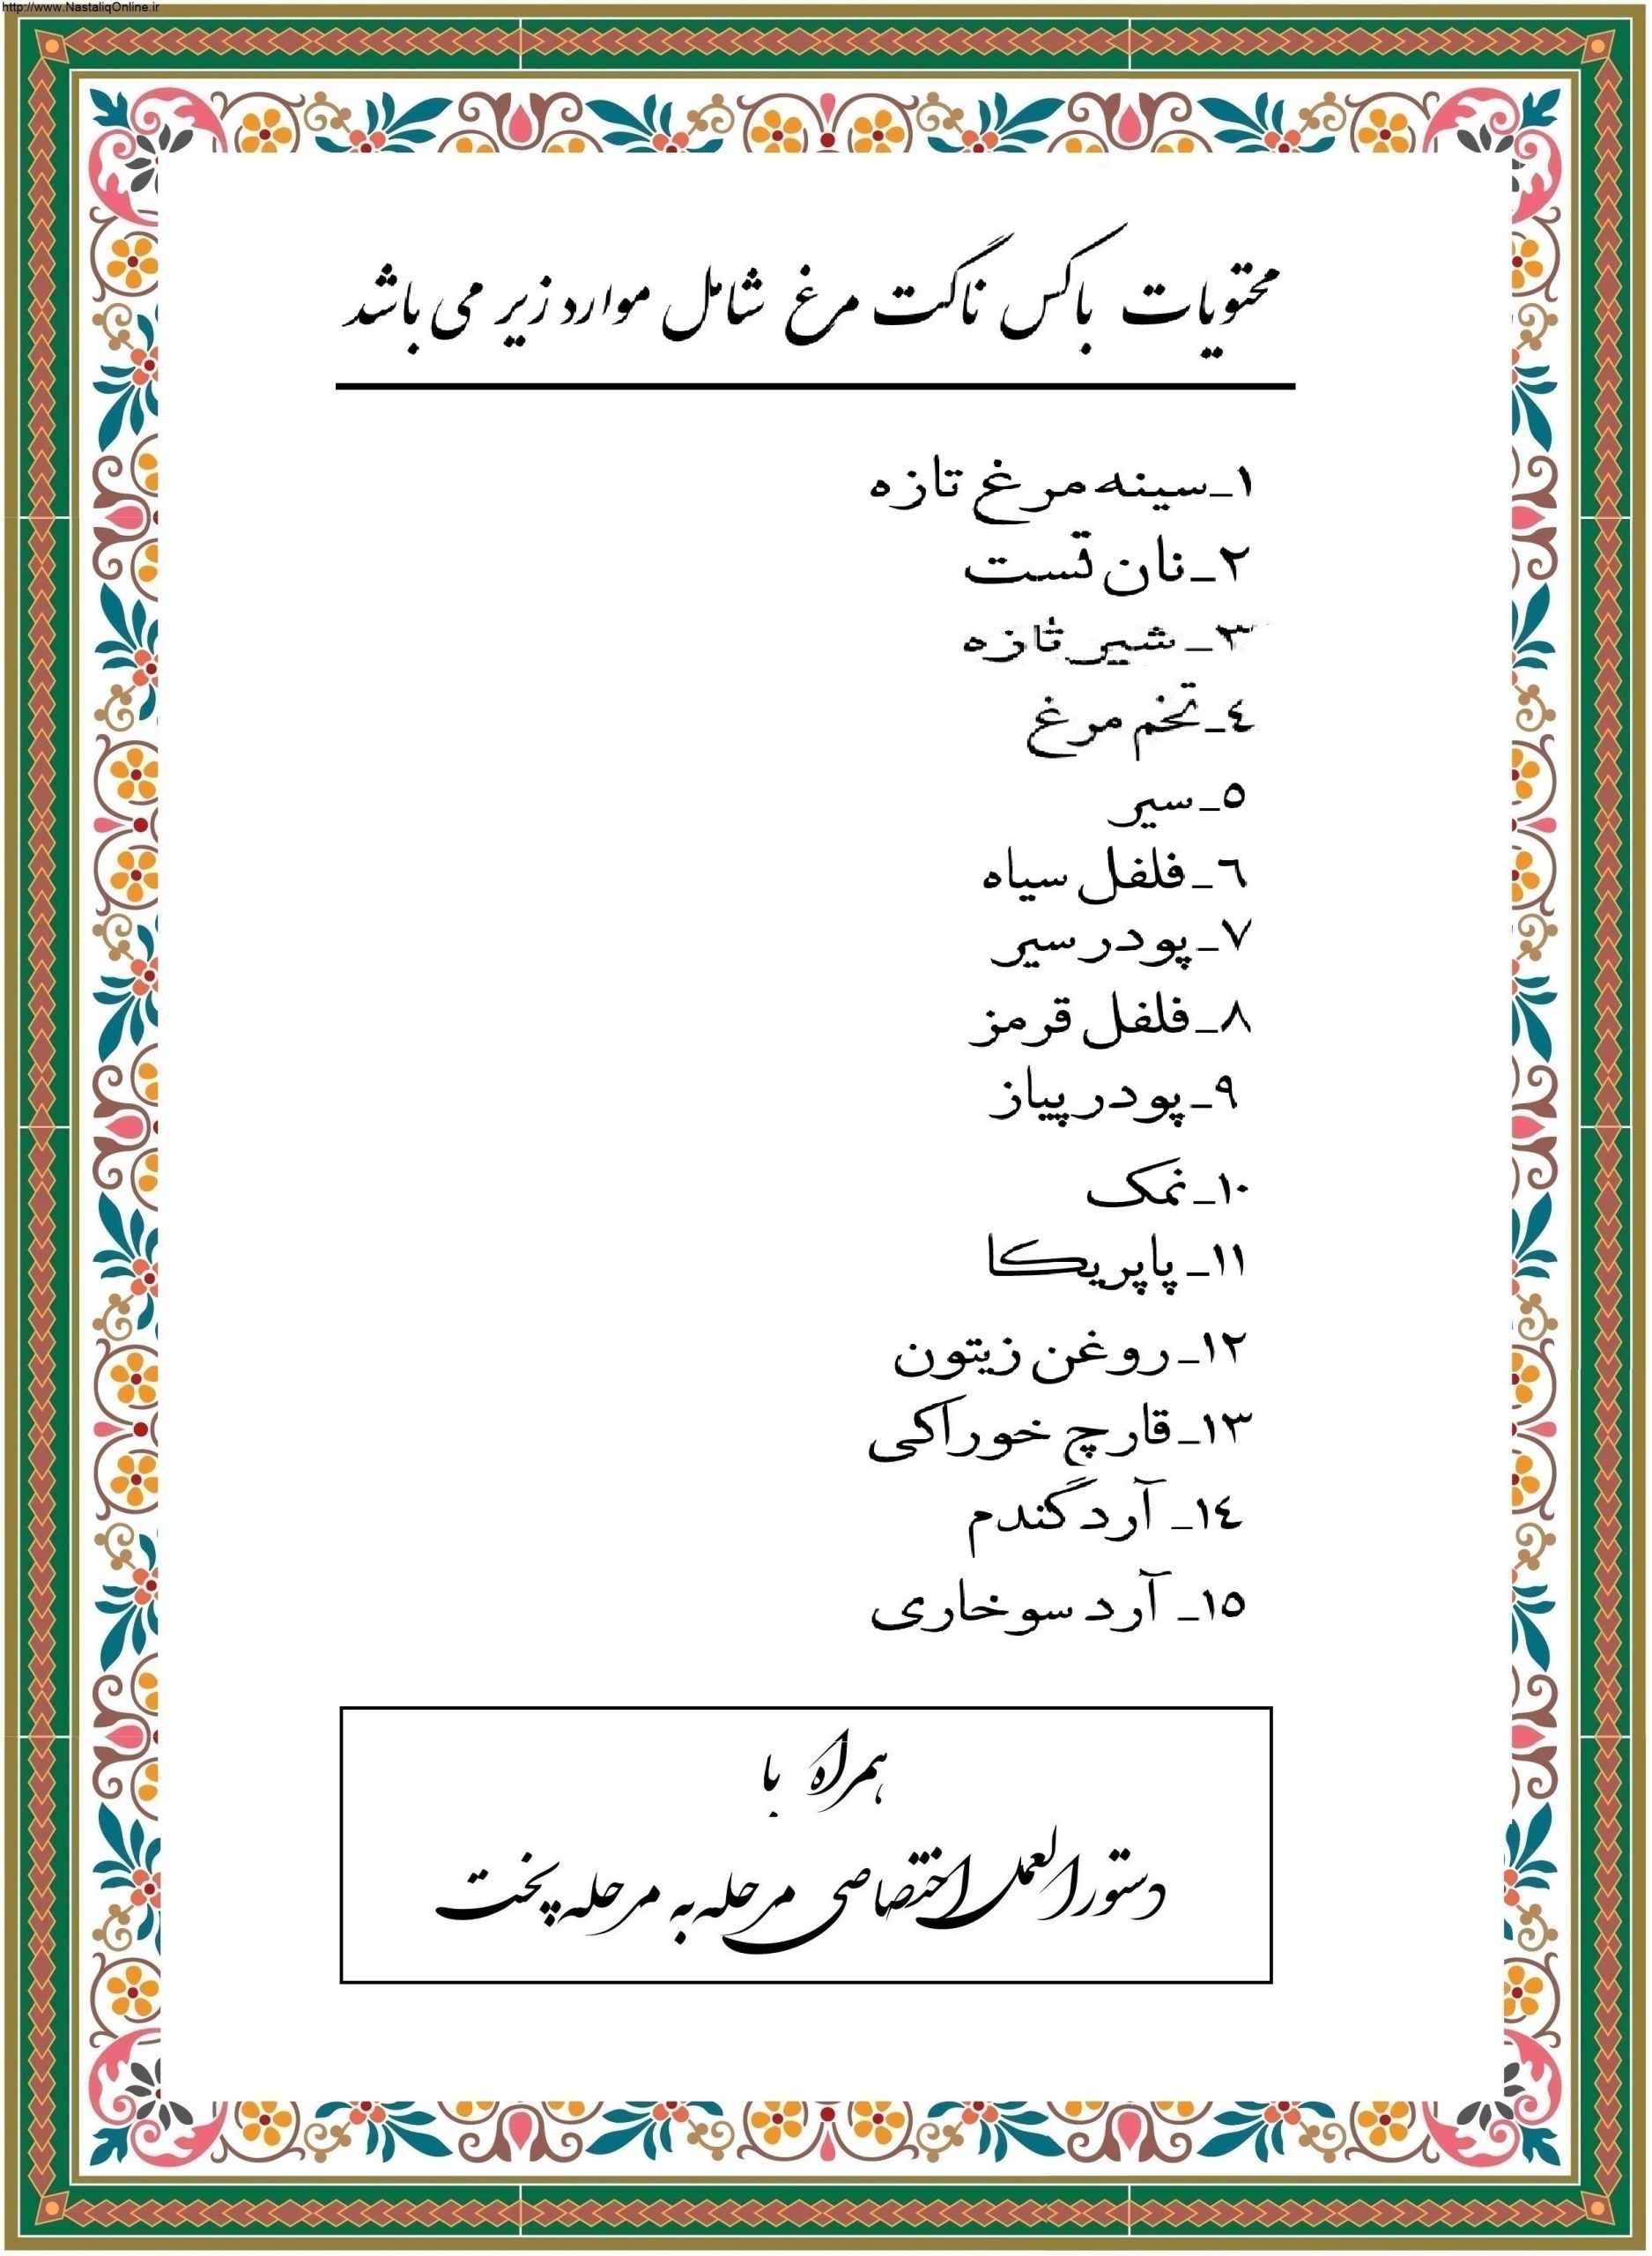 http://www.NastaliqOnline.ir
محتویات باکس ناگت مرغ شامل موارد زیر می باشد
١_سینه مرغ تازه
٢_نان تست
٣_شیر تازه
٤_تخم مرغ
٥_سیر
٦_فلفل سیاه
٧_پودر سیر
٨_فلفل قرمز
٩_پودر پیاز
١٠_نمک
١١_پاپریکا
١٢_روغن زیتون
١٣_قارچ خوراکی
١٤_ آرد گندم
١٥_ آرد سوخاری
همراه با
دستورالعمل اختصاصی مرحله به مرحله پخت